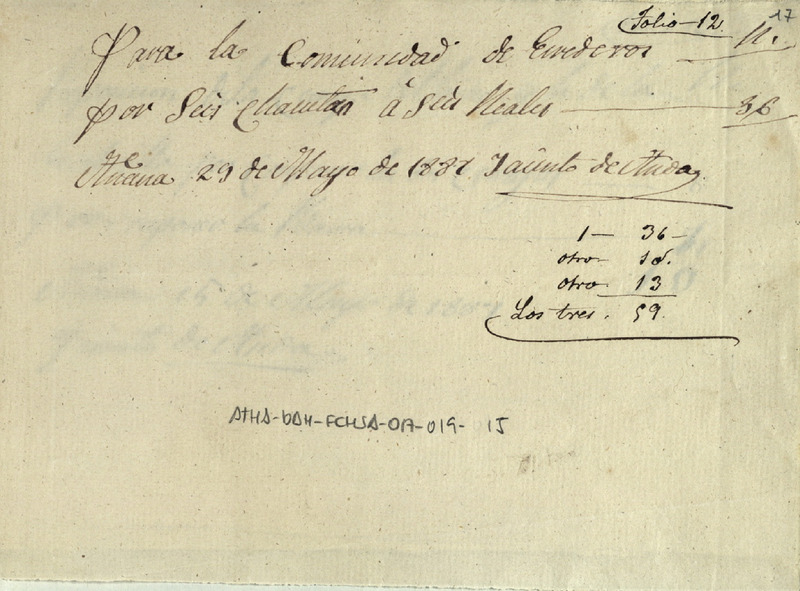 17
Folio 12
Para la Comunidad de Erederos Rs.
por Seis Chavetas á Seis Reales 36
Añana 29 de Mayo de 1881 Jacinto de Anda
1 — 36 —
otro — 10.
otro — 13
Los tres . 59.
ATHA-DAH-FCHSA-017-019- 15